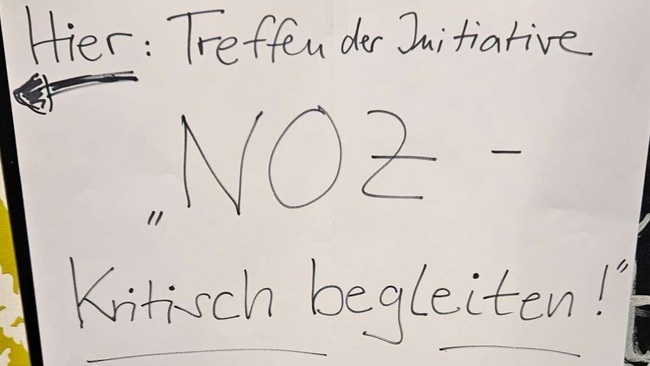 Hier: Treffen der Initiative
„NOZ -
Kritisch begleiten!"